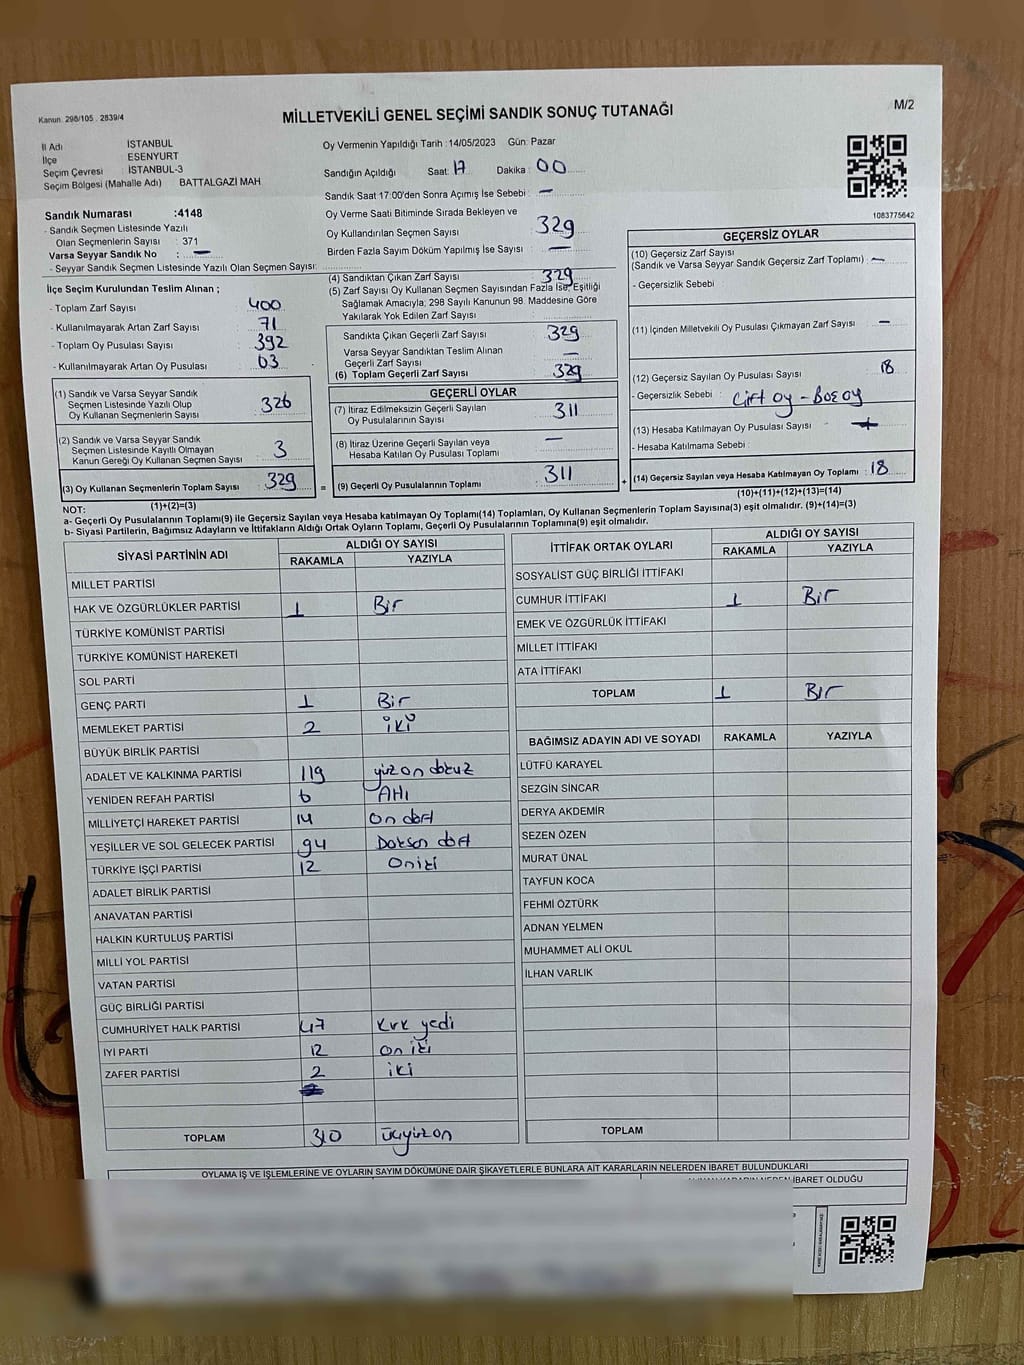 Kanun. 298/105 . 2839/4
MİLLETVEKİLİ GENEL SEÇİMİ SANDIK SONUÇ TUTANAĞI
M/2
İl Adı İSTANBUL
İlçe ESENYURT
Seçim Çevresi : İSTANBUL-3
Seçim Bölgesi (Mahalle Adı) BATTALGAZİ MAH
Sandık Numarası :4148
- Sandık Seçmen Listesinde Yazılı
Olan Seçmenlerin Sayısı : 371
Varsa Seyyar Sandık No : —
- Seyyar Sandık Seçmen Listesinde Yazılı Olan Seçmen Sayısı:
Oy Vermenin Yapıldığı Tarih :14/05/2023 Gün: Pazar
Sandığın Açıldığı Saat: 17 Dakika : 00
Sandık Saat 17:00'den Sonra Açımış İse Sebebi : —
Oy Verme Saati Bitiminde Sırada Bekleyen ve
Oy Kullandırılan Seçmen Sayısı : 329
Birden Fazla Sayım Döküm Yapılmış İse Sayısı : —
1083775642
İlçe Seçim Kurulundan Teslim Alınan ;
- Toplam Zarf Sayısı : 400
- Kullanılmayarak Artan Zarf Sayısı : 71
- Toplam Oy Pusulası Sayısı : 392
- Kullanılmayarak Artan Oy Pusulası : 63
(1) Sandık ve Varsa Seyyar Sandık
Seçmen Listesinde Yazılı Olup
Oy Kullanan Seçmenlerin Sayısı : 326
(2) Sandık ve Varsa Seyyar Sandık
Seçmen Listesinde Kayıtlı Olmayan
Kanun Gereği Oy Kullanan Seçmen Sayısı : 3
(3) Oy Kullanan Seçmenlerin Toplam Sayısı : 329
(1)+(2)=(3)
(4) Sandıktan Çıkan Zarf Sayısı : 329
(5) Zarf Sayısı Oy Kullanan Seçmen Sayısından Fazla İse, Eşitliği
Sağlamak Amacıyla; 298 Sayılı Kanunun 98. Maddesine Göre
Yakılarak Yok Edilen Zarf Sayısı :
Sandıkta Çıkan Geçerli Zarf Sayısı : 329
Varsa Seyyar Sandıktan Teslim Alınan
Geçerli Zarf Sayısı : —
(6) Toplam Geçerli Zarf Sayısı : 329
GEÇERLİ OYLAR
(7) İtiraz Edilmeksizin Geçerli Sayılan
Oy Pusulalarının Sayısı : 311
(8) İtiraz Üzerine Geçerli Sayılan veya
Hesaba Katılan Oy Pusulası Toplamı : —
= (9) Geçerli Oy Pusulalarının Toplamı : 311
GEÇERSİZ OYLAR
(10) Geçersiz Zarf Sayısı
(Sandık ve Varsa Seyyar Sandık Geçersiz Zarf Toplamı) : —
- Geçersizlik Sebebi :
(11) İçinden Milletvekili Oy Pusulası Çıkmayan Zarf Sayısı : —
(12) Geçersiz Sayılan Oy Pusulası Sayısı : 18
- Geçersizlik Sebebi : Çift oy - Boş oy
(13) Hesaba Katılmayan Oy Pusulası Sayısı :
- Hesaba Katılmama Sebebi :
+ (14) Geçersiz Sayılan veya Hesaba Katılmayan Oy Toplamı : 18
(10)+(11)+(12)+(13)=(14)
NOT:
a- Geçerli Oy Pusulalarının Toplamı(9) ile Geçersiz Sayılan veya Hesaba Katılmayan Oy Toplamı(14) Toplamları, Oy Kullanan Seçmenlerin Toplam Sayısına(3) eşit olmalıdır. (9)+(14)=(3)
b- Siyasi Partilerin, Bağımsız Adayların ve İttifakların Aldığı Ortak Oyların Toplamı, Geçerli Oy Pusulalarının Toplamına(9) eşit olmalıdır.
SİYASİ PARTİNİN ADI ALDIĞI OY SAYISI
RAKAMLA YAZIYLA
MİLLET PARTİSİ
HAK VE ÖZGÜRLÜKLER PARTİSİ 1 Bir
TÜRKİYE KOMÜNİST PARTİSİ
TÜRKİYE KOMÜNİST HAREKETİ
SOL PARTİ
GENÇ PARTİ 1 Bir
MEMLEKET PARTİSİ 2 iki
BÜYÜK BİRLİK PARTİSİ
ADALET VE KALKINMA PARTİSİ 119 yüz on dokuz
YENİDEN REFAH PARTİSİ 6 Altı
MİLLİYETÇİ HAREKET PARTİSİ 14 On dört
YEŞİLLER VE SOL GELECEK PARTİSİ 94 Doksan dört
TÜRKİYE İŞÇİ PARTİSİ 12 Oniki
ADALET BİRLİK PARTİSİ
ANAVATAN PARTİSİ
HALKIN KURTULUŞ PARTİSİ
MİLLİ YOL PARTİSİ
VATAN PARTİSİ
GÜÇ BİRLİĞİ PARTİSİ
CUMHURİYET HALK PARTİSİ 47 Kırk yedi
İYİ PARTİ 12 on iki
ZAFER PARTİSİ 2 iki
TOPLAM 310 üçyüzon
İTTİFAK ORTAK OYLARI ALDIĞI OY SAYISI
RAKAMLA YAZIYLA
SOSYALİST GÜÇ BİRLİĞİ İTTİFAKI
CUMHUR İTTİFAKI 1 Bir
EMEK VE ÖZGÜRLÜK İTTİFAKI
MİLLET İTTİFAKI
ATA İTTİFAKI
TOPLAM 1 Bir
BAĞIMSIZ ADAYIN ADI VE SOYADI RAKAMLA YAZIYLA
LÜTFÜ KARAYEL
SEZGİN SİNCAR
DERYA AKDEMİR
SEZEN ÖZEN
MURAT ÜNAL
TAYFUN KOCA
FEHMİ ÖZTÜRK
ADNAN YELMEN
MUHAMMET ALİ OKUL
İLHAN VARLIK
TOPLAM
OYLAMA İŞ VE İŞLEMLERİNE VE OYLARIN SAYIM DÖKÜMÜNE DAİR ŞİKAYETLERLE BUNLARA AİT KARARLARIN NELERDEN İBARET BULUNDUKLARI
İBARET OLDUĞU